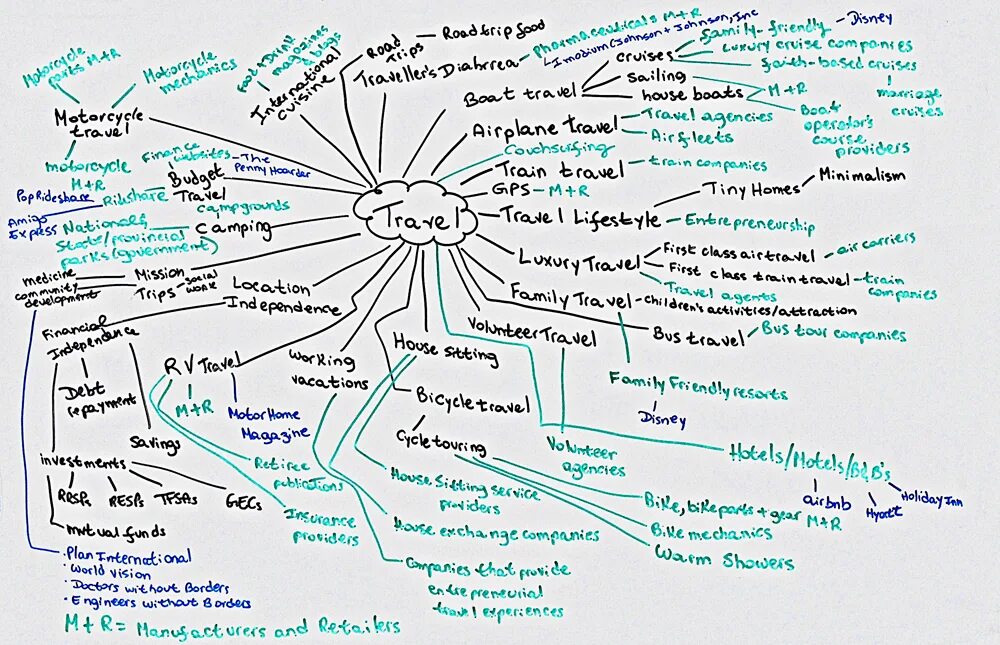 Motorcycle
parts M+R
Motorcycle
mechanics
Motorcycle
travel
motorcycle
M+R
Food + Drink
magazines
+ blogs
International
cuisine
Road
Trips
Road trip food
Traveller's Diahrrea
Pharmaceuticals M+R
Imodium (Johnson + Johnson, Inc
Boat travel
cruises
family-friendly
Disney
Luxury cruise companies
faith-based cruises
marriage
cruises
sailing
house boats
M+R
Boat
operator's
course
providers
Airplane travel
Travel agencies
Air fleets
Couchsurfing
Train travel
train companies
GPS - M+R
Travel Lifestyle
Tiny Homes
Minimalism
Entrepreneurship
Luxury Travel
First class air travel
air carriers
First class train travel
train
companies
Travel agents
Family Travel
children's activities/attraction
Family Friendly resorts
Disney
Bus travel
Bus tour companies
Volunteer Travel
Volunteer
agencies
Hotels/Motels/B&B's
airbnb
Hyatt
Holiday Inn
Travel
Finance
websites
The
Penny Hoarder
Budget
Travel
Rideshare
PopRideshare
Amigo
Express
campgrounds
Camping
National &
State/provincial
parks (government)
Mission
Trips
social
work
medicine
community
development
Plan International
World Vision
Doctors without Borders
Engineers without Borders
Location
Independence
Financial
Independence
Debt
repayment
Savings
investments
RRSPs
RESPs
TFSAs
GECs
mutual funds
RV Travel
M+R
MotorHome
Magazine
Retiree
publications
Insurance
providers
Working
vacations
Companies that provide
entrepreneurial
travel experiences
House Sitting
House Sitting service
providers
House exchange companies
Bicycle travel
Cycle touring
Bike, bike parts + gear
M+R
Bike mechanics
Warm Showers
M+R = Manufacturers and Retailers